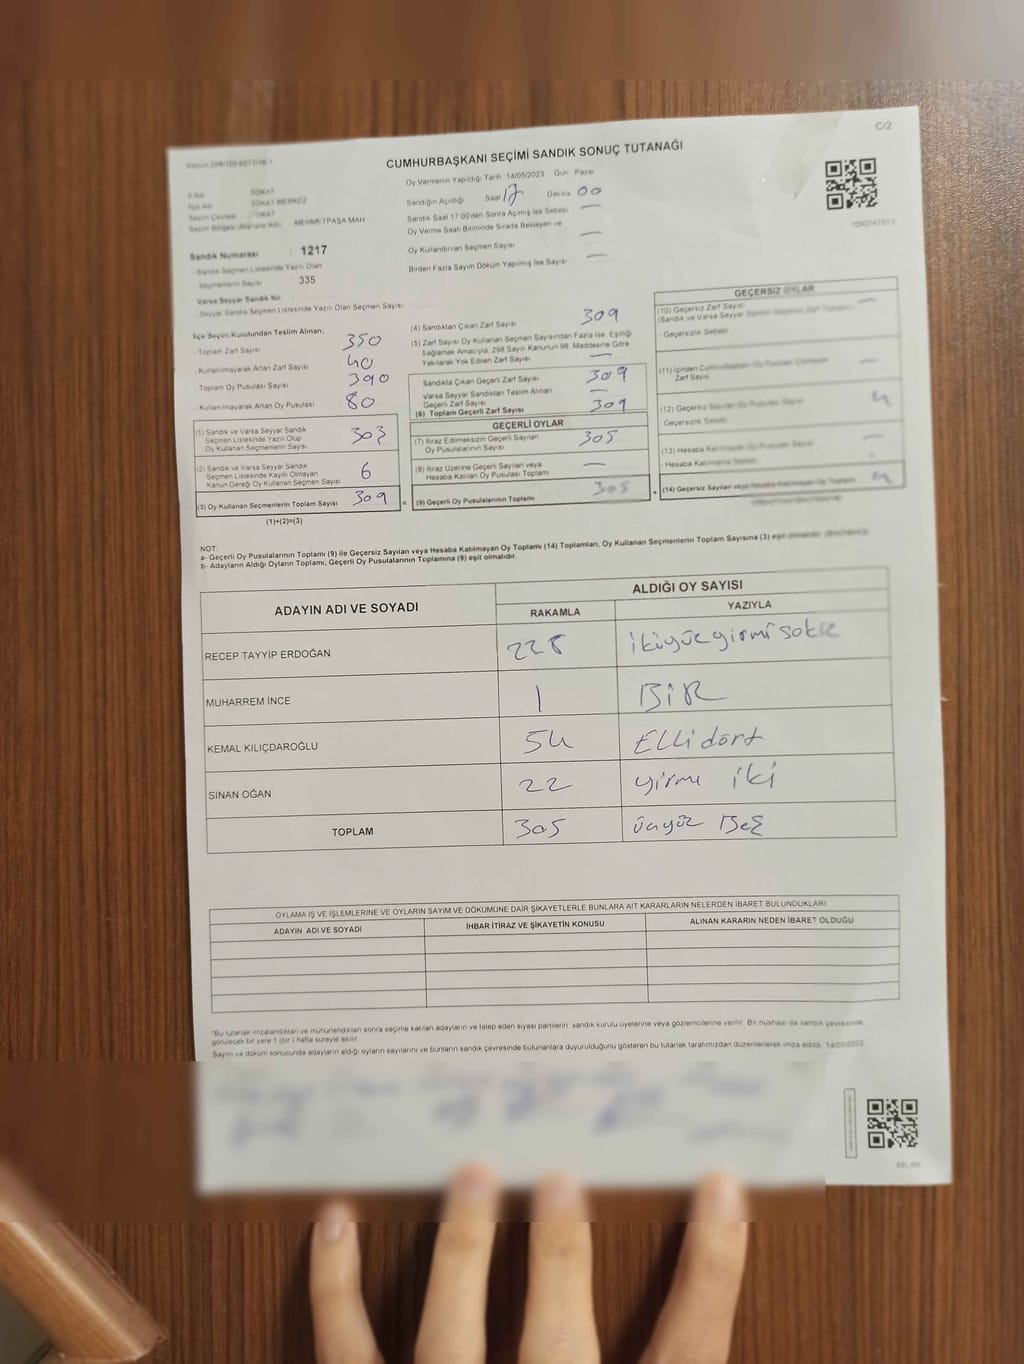 C/2
CUMHURBAŞKANI SEÇİMİ SANDIK SONUÇ TUTANAĞI
Oy Vermenin Yapıldığı Tarih 14/05/2023 Gün Pazar
Sandığın Açıldığı Saat 17 Dakika 00
Sandık Saat 17:00'den Sonra Açılmış İse Sebebi —
Oy Verme Saati Bitiminde Sırada Bekleyen ve
Oy Kullandırılan Seçmen Sayısı —
Birden Fazla Sayım Döküm Yapılmış İse Sayısı —
İl Adı TOKAT
İlçe Adı TOKAT MERKEZ
Seçim Çevresi TOKAT
Seçim Bölgesi (Mahalle Adı) MEHMETPAŞA MAH
Sandık Numarası : 1217
Sandık Seçmen Listesinde Yazılı Olan
Seçmenlerin Sayısı 335
Varsa Seyyar Sandık No
Seyyar Sandık Seçmen Listesinde Yazılı Olan Seçmen Sayısı
İlçe Seçim Kurulundan Teslim Alınan;
- Toplam Zarf Sayısı 350
- Kullanılmayarak Artan Zarf Sayısı 40
- Toplam Oy Pusulası Sayısı 390
- Kullanılmayarak Artan Oy Pusulası 80
(1) Sandık ve Varsa Seyyar Sandık
Seçmen Listesinde Yazılı Olup
Oy Kullanan Seçmenlerin Sayısı 303
(2) Sandık ve Varsa Seyyar Sandık
Seçmen Listesinde Kayıtlı Olmayan
Kanun Gereği Oy Kullanan Seçmen Sayısı 6
(3) Oy Kullanan Seçmenlerin Toplam Sayısı 309
(1)+(2)=(3)
(4) Sandıktan Çıkan Zarf Sayısı 309
(5) Zarf Sayısı Oy Kullanan Seçmen Sayısından Fazla İse, Eşitliği
Sağlamak Amacıyla, 298 Sayılı Kanunun 98. Maddesine Göre
Yakılarak Yok Edilen Zarf Sayısı —
Sandıkta Çıkan Geçerli Zarf Sayısı 309
Varsa Seyyar Sandıktan Teslim Alınan
Geçerli Zarf Sayısı —
(6) Toplam Geçerli Zarf Sayısı 309
GEÇERLİ OYLAR
(7) İtiraz Edilmeksizin Geçerli Sayılan
Oy Pusulalarının Sayısı 305
(8) İtiraz Üzerine Geçerli Sayılan veya
Hesaba Katılan Oy Pusulası Toplamı —
= (9) Geçerli Oy Pusulalarının Toplamı 305
GEÇERSİZ OYLAR
(10) Geçersiz Zarf Sayısı —
(Sandık ve Varsa Seyyar
- Geçersizlik Sebebi
(11) İçinden
Zarf Sayısı —
(12) Geçersiz
- Geçersizlik Sebebi
(13) Hesaba —
- Hesaba
+ (14) Geçersiz Sayılan
NOT:
a- Geçerli Oy Pusulalarının Toplamı (9) ile Geçersiz Sayılan veya Hesaba Katılmayan Oy Toplamı (14) Toplamları, Oy Kullanan Seçmenlerin Toplam Sayısına (3) eşit olmalıdır.
b- Adayların Aldığı Oyların Toplamı, Geçerli Oy Pusulalarının Toplamına (9) eşit olmalıdır.
ADAYIN ADI VE SOYADI ALDIĞI OY SAYISI
RAKAMLA YAZIYLA
RECEP TAYYİP ERDOĞAN 228 ikiyüzyirmi
MUHARREM İNCE 1 BİR
KEMAL KILIÇDAROĞLU 54 Ellidört
SİNAN OĞAN 22 yirmi iki
TOPLAM 305 üçyüz Beş
OYLAMA İŞ VE İŞLEMLERİNE VE OYLARIN SAYIM VE DÖKÜMÜNE DAİR ŞİKAYETLERLE BUNLARA AİT KARARLARIN NELERDEN İBARET BULUNDUKLARI
ADAYIN ADI VE SOYADI İHBAR İTİRAZ VE ŞİKAYETİN KONUSU ALINAN KARARIN NEDEN İBARET OLDUĞU
"Bu tutanak imzalandıktan ve mühürlendikten sonra seçime katılan adayların ve talep eden siyasi partilerin sandık kurulu üyelerine veya gözlemcilerine verilir. Bir nüshası da sandık çevresinde
görülecek bir yere 1 (bir) hafta süreyle asılır.
Sayım ve döküm sonucunda adayların aldığı oyların sayılarını ve bunların sandık çevresinde bulunanlara duyurulduğunu gösteren bu tutanak tarafımızdan düzenlenerek imza edildi. 14/05/2023